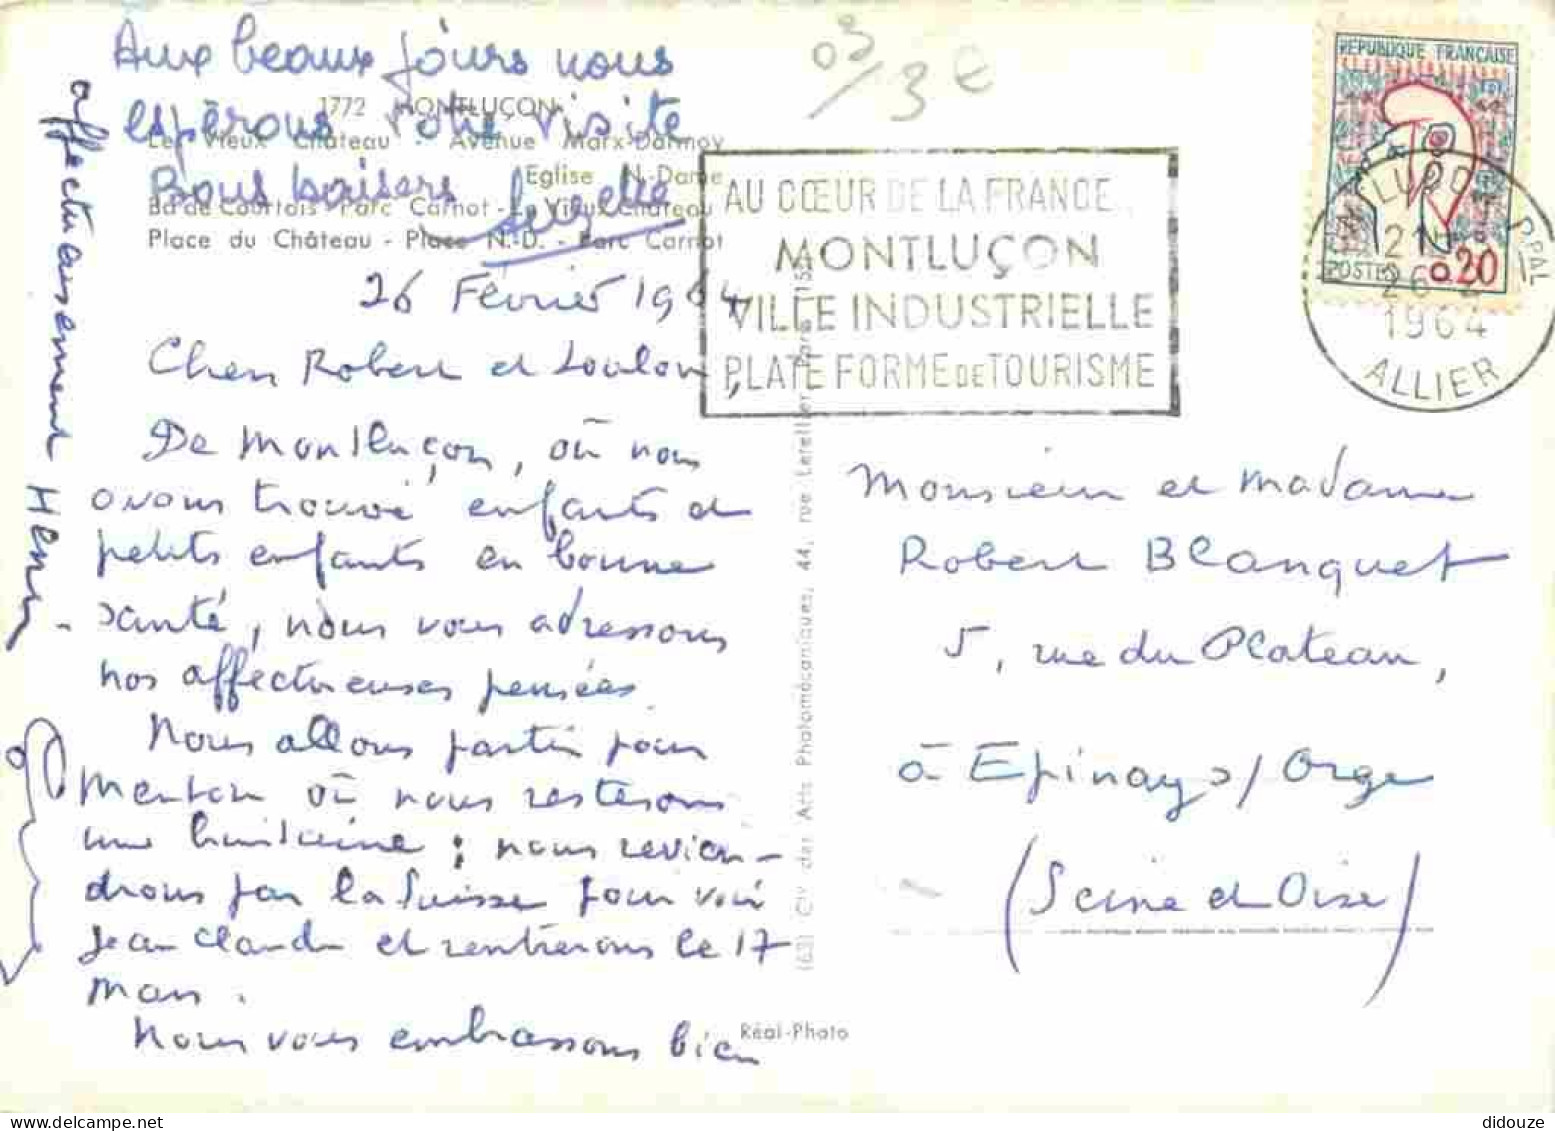 Aux beaux jours nous
espérons votre visite
Bons baisers
1772 MONTLUÇON
Le Vieux Château - Avenue Marx-Dormoy
Eglise N.-Dame
Bd de Courtais Parc Carnot - Le Vieux Château
Place du Château - Place N.-D. - Parc Carnot
26 Février 1964
Chers Robert et Loulou,
De Montluçon, où nous
avons trouvé enfants et
petits enfants en bonne
santé, nous vous adressons
nos affectueuses pensées.
Nous allons partir pour
Menton où nous resterons
une huitaine ; nous revien-
drons par la Suisse pour voir
Jean Claude et rentrerons le 17
Mars.
Nous vous embrassons bien
affectueusement Henry
03/3€
AU CŒUR DE LA FRANCE
MONTLUÇON
VILLE INDUSTRIELLE
PLATE FORME DE TOURISME
RÉPUBLIQUE FRANÇAISE
POSTES 0.20
MONTLUÇON PPAL
21H
26-2
1964
ALLIER
Monsieur et Madame
Robert Blanquet
5, rue du Plateau,
à Epinay s/ Orge
(Seine et Oise)
(63) Cie des Arts Photomécaniques, 44, rue Letellier, Paris 15e
Réal-Photo
didouze